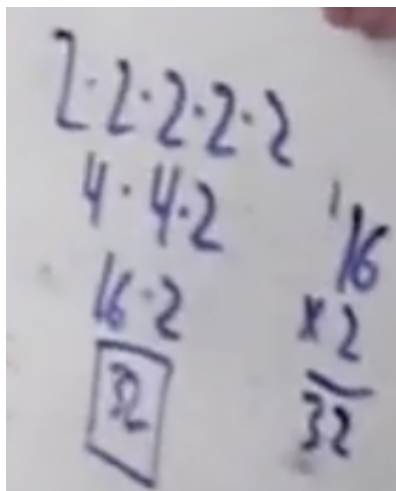 2·2·2·2·2
4·4·2
16·2
32
1
16
×2
32